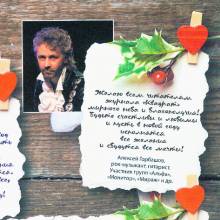 Желаю всем читателям
журнала «Квадрат»
мирного неба и благополучия!
Будьте счастливы и любимы
и пусть в новом году
исполнятся
все желания
и сбудутся все мечты!
Алексей Горбашов,
рок-музыкант, гитарист.
Участник групп «Альфа»,
«Монитор», «Мираж» и др.